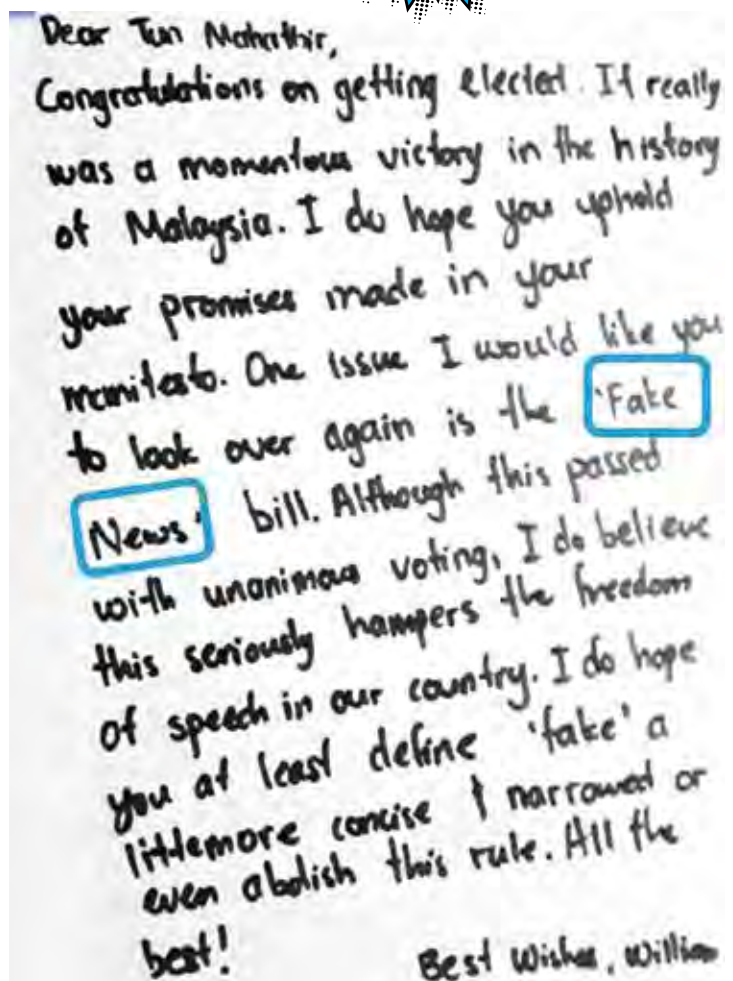 Dear Tun Mahathir,
Congratulations on getting elected. It really
was a momentous victory in the history
of Malaysia. I do hope you uphold
your promises made in your
manifesto. One issue I would like you
to look over again is the 'Fake
News' bill. Although this passed
with unanimous voting, I do believe
this seriously hampers the freedom
of speech in our country. I do hope
you at least define 'fake' a
littlemore concise / narrowed or
even abolish this rule. All the
best!
Best Wishes, William